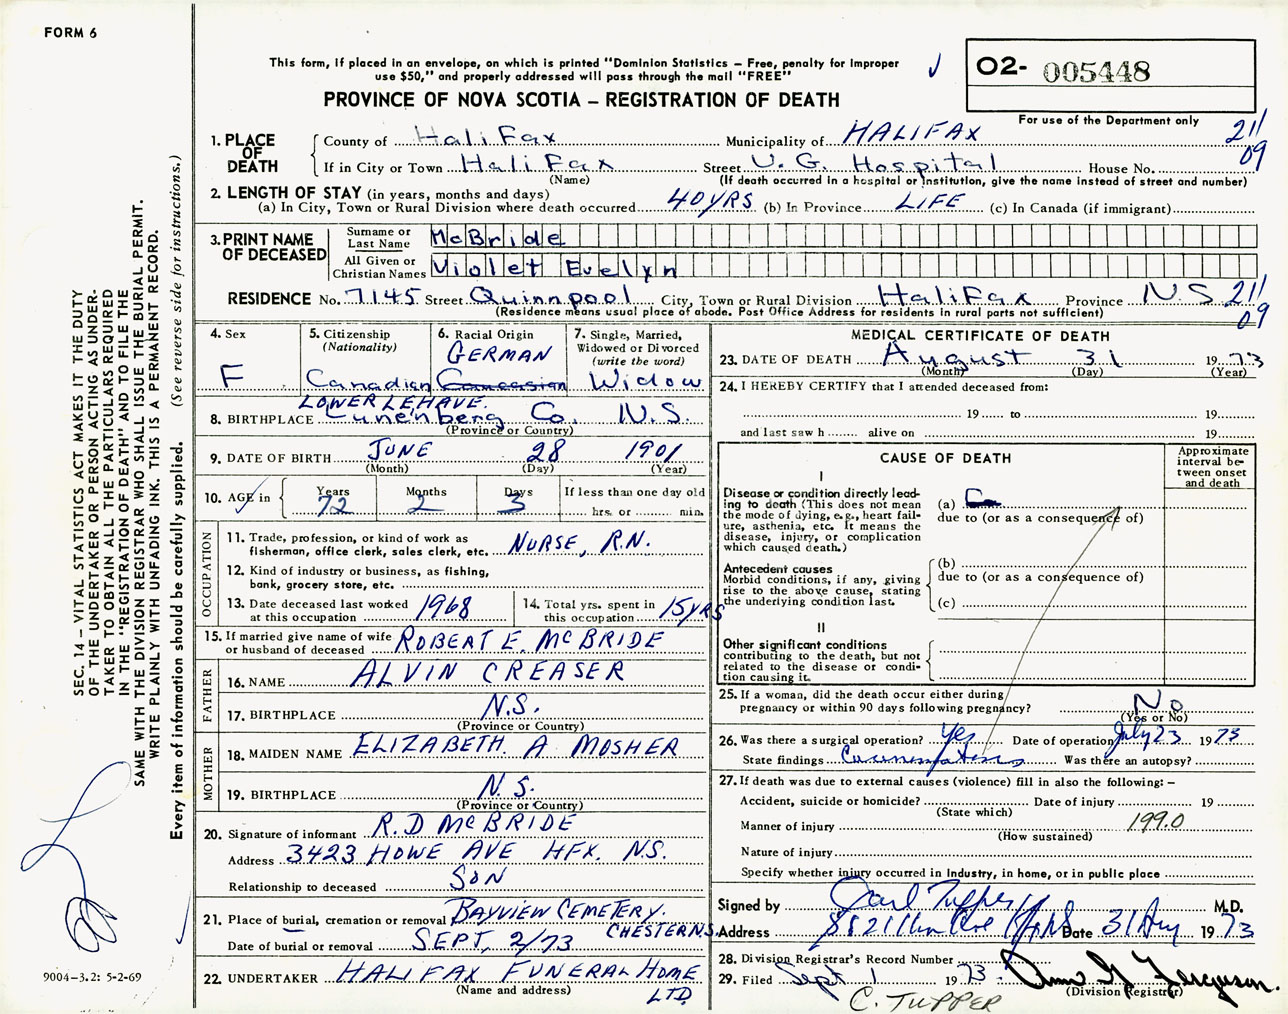 FORM 6
This form, if placed in an envelope, on which is printed "Dominion Statistics – Free, penalty for improper
use $50," and properly addressed will pass through the mail "FREE"
PROVINCE OF NOVA SCOTIA – REGISTRATION OF DEATH
02- 005448
For use of the Department only
211
09
1. PLACE OF DEATH
County of Halifax Municipality of HALIFAX
If in City or Town Halifax Street V. G. Hospital House No.
(Name) (If death occurred in a hospital or institution, give the name instead of street and number)
2. LENGTH OF STAY (in years, months and days)
(a) In City, Town or Rural Division where death occurred 40 YRS (b) In Province LIFE (c) In Canada (if immigrant)
3. PRINT NAME OF DECEASED
Surname or Last Name McBride
All Given or Christian Names Violet Evelyn
RESIDENCE No. 7145 Street Quinnpool City, Town or Rural Division Halifax Province N.S. 211
09
(Residence means usual place of abode. Post Office Address for residents in rural parts not sufficient)
4. Sex
F
5. Citizenship
(Nationality)
Canadian
6. Racial Origin
GERMAN
7. Single, Married,
Widowed or Divorced
(write the word)
Widow
LOWER LEHAVE.
8. BIRTHPLACE Lunenberg Co. N.S.
(Province or Country)
9. DATE OF BIRTH JUNE 28 1901
(Month) (Day) (Year)
10. AGE in
Years Months Days If less than one day old
72 2 3 hrs. or min.
OCCUPATION
11. Trade, profession, or kind of work as
fisherman, office clerk, sales clerk, etc. NURSE, R.N.
12. Kind of industry or business, as fishing,
bank, grocery store, etc.
13. Date deceased last worked
at this occupation 1968
14. Total yrs. spent in
this occupation 15 YRS
15. If married give name of wife
or husband of deceased ROBERT E. MCBRIDE
FATHER
16. NAME ALVIN CREASER
17. BIRTHPLACE N.S.
(Province or Country)
MOTHER
18. MAIDEN NAME ELIZABETH. A MOSHER
19. BIRTHPLACE N.S.
(Province or Country)
20. Signature of informant R.D MCBRIDE
Address 3423 HOWE AVE HFX. N.S.
Relationship to deceased SON
21. Place of burial, cremation or removal BAYVIEW CEMETERY.
CHESTER N.S.
Date of burial or removal SEPT, 2/73
22. UNDERTAKER HALIFAX FUNERAL HOME
(Name and address) LTD.
MEDICAL CERTIFICATE OF DEATH
23. DATE OF DEATH August 31 1973
(Month) (Day) (Year)
24. I HEREBY CERTIFY that I attended deceased from:
19 to 19
and last saw h alive on 19
CAUSE OF DEATH
Approximate
interval be-
tween onset
and death
I
Disease or condition directly lead-
ing to death (This does not mean
the mode of dying, e.g., heart fail-
ure, asthenia, etc. It means the
disease, injury, or complication
which caused death.)
(a)
due to (or as a consequence of)
Antecedent causes
Morbid conditions, if any, giving
rise to the above cause, stating
the underlying condition last.
(b)
due to (or as a consequence of)
(c)
II
Other significant conditions
contributing to the death, but not
related to the disease or condi-
tion causing it.
25. If a woman, did the death occur either during
pregnancy or within 90 days following pregnancy? No
(Yes or No)
26. Was there a surgical operation? Yes Date of operation July 23 1973
State findings Was there an autopsy?
27. If death was due to external causes (violence) fill in also the following: –
Accident, suicide or homicide? Date of injury 19
(State which)
Manner of injury 199.0
(How sustained)
Nature of injury
Specify whether injury occurred in Industry, in home, or in public place
Signed by Carl Tupper M.D.
Address Date 31 Aug 1973
28. Division Registrar's Record Number
29. Filed Sept 1 1973. Ann G Ferguson.
(Division Registrar)
C. TUPPER
SEC. 14 – VITAL STATISTICS ACT MAKES IT THE DUTY
OF THE UNDERTAKER OR PERSON ACTING AS UNDER-
TAKER TO OBTAIN ALL THE PARTICULARS REQUIRED
IN THE "REGISTRATION OF DEATH" AND TO FILE THE
SAME WITH THE DIVISION REGISTRAR WHO SHALL ISSUE THE BURIAL PERMIT.
WRITE PLAINLY WITH UNFADING INK. THIS IS A PERMANENT RECORD.
Every item of information should be carefully supplied. (See reverse side for instructions.)
9004-3.2: 5-2-69